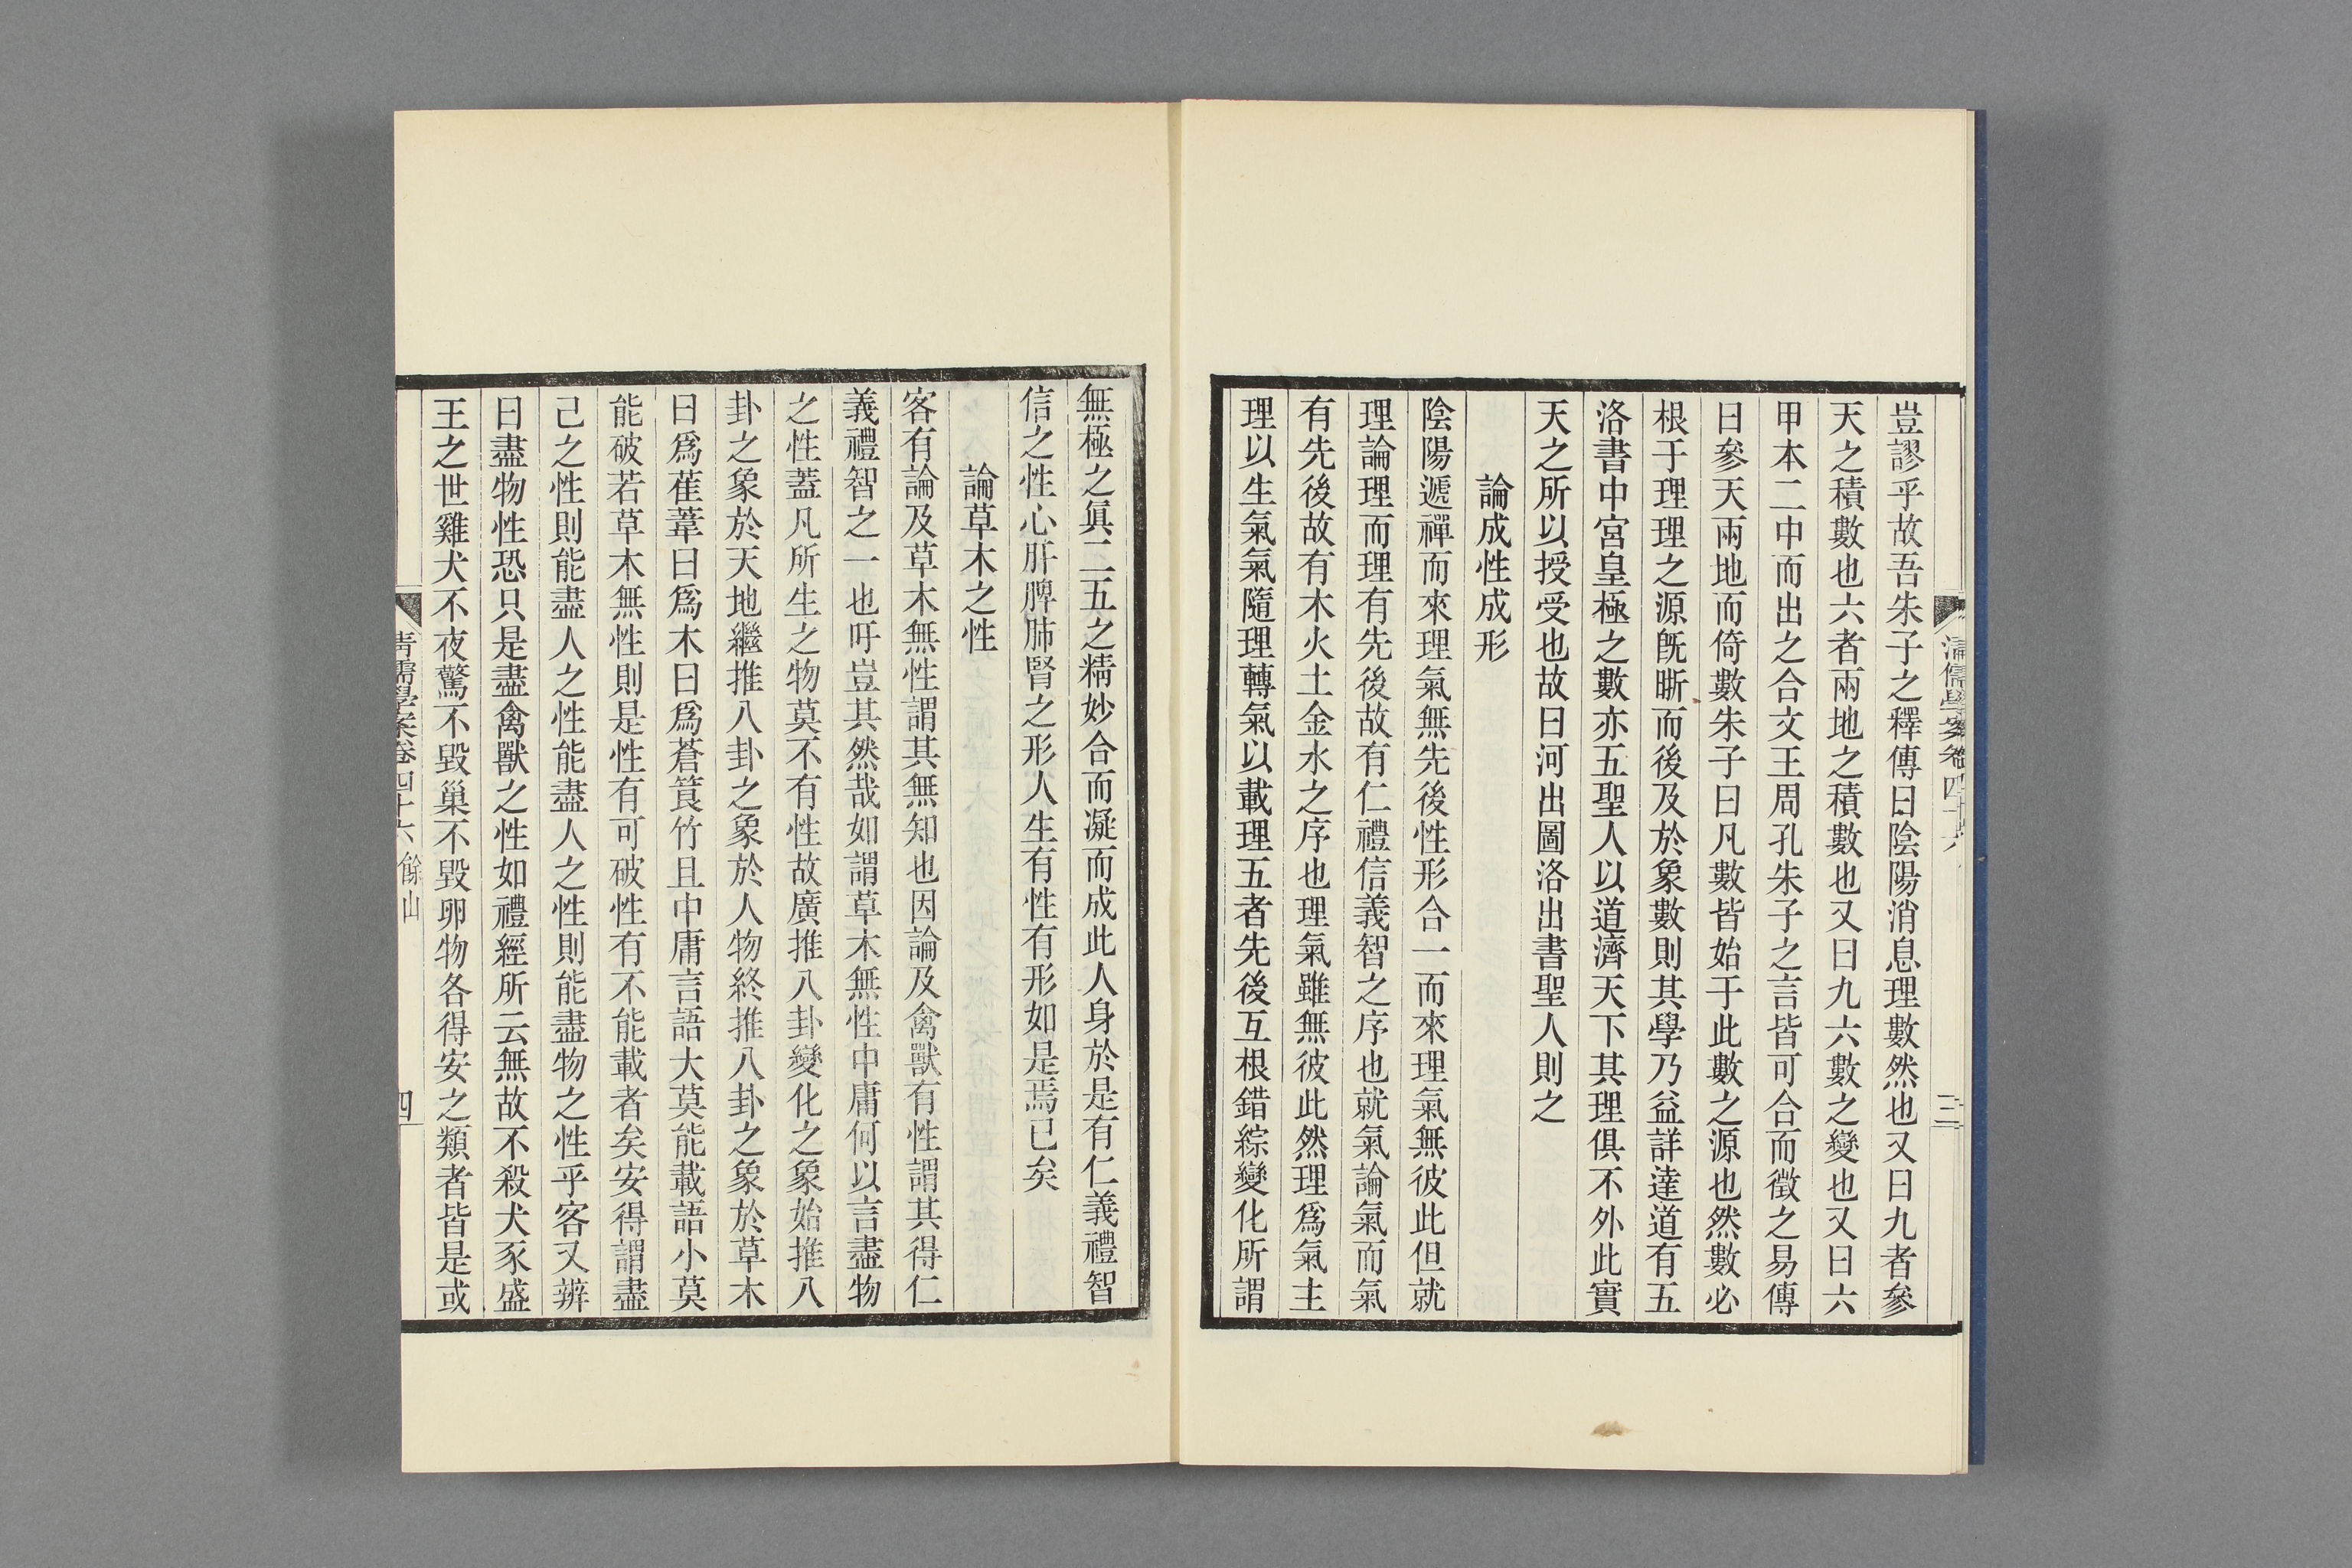 豈謬乎故吾朱子之釋傳曰陰陽消息理數然也又曰九者參
天之積數也六者兩地之積數也又曰九六數之變也又曰六
甲本二中而出之合文王周孔朱子之言皆可合而徵之易傳
曰參天兩地而倚數朱子曰凡數皆始于此數之源也然數必
根于理理之源旣晣而後及於象數則其學乃益詳達道有五
洛書中宮皇極之數亦五聖人以道濟天下其理俱不外此實
天之所以授受也故曰河出圖洛出書聖人則之
論成性成形
陰陽遞禪而來理氣無先後性形合一而來理氣無彼此但就
理論理而理有先後故有仁禮信義智之序也就氣論氣而氣
有先後故有木火土金水之序也理氣雖無彼此然理爲氣主
理以生氣氣隨理轉氣以載理五者先後互根錯綜變化所謂
清儒學案卷四十六
三
無極之眞二五之精妙合而凝而成此人身於是有仁義禮智
信之性心肝脾肺腎之形人生有性有形如是焉已矣
論草木之性
客有論及草木無性謂其無知也因論及禽獸有性謂其得仁
義禮智之一也吁豈其然哉如謂草木無性中庸何以言盡物
之性蓋凡所生之物莫不有性故廣推八卦變化之象始推八
卦之象於天地繼推八卦之象於人物終推八卦之象於草木
曰爲萑葦曰爲木曰爲蒼筤竹且中庸言語大莫能載語小莫
能破若草木無性則是性有可破性有不能載者矣安得謂盡
己之性則能盡人之性能盡人之性則能盡物之性乎客又辨
曰盡物性恐只是盡禽獸之性如禮經所云無故不殺犬豕盛
王之世雞犬不夜驚不毀巢不毀卵物各得安之類者皆是或
清儒學案卷四十六 餘山
四